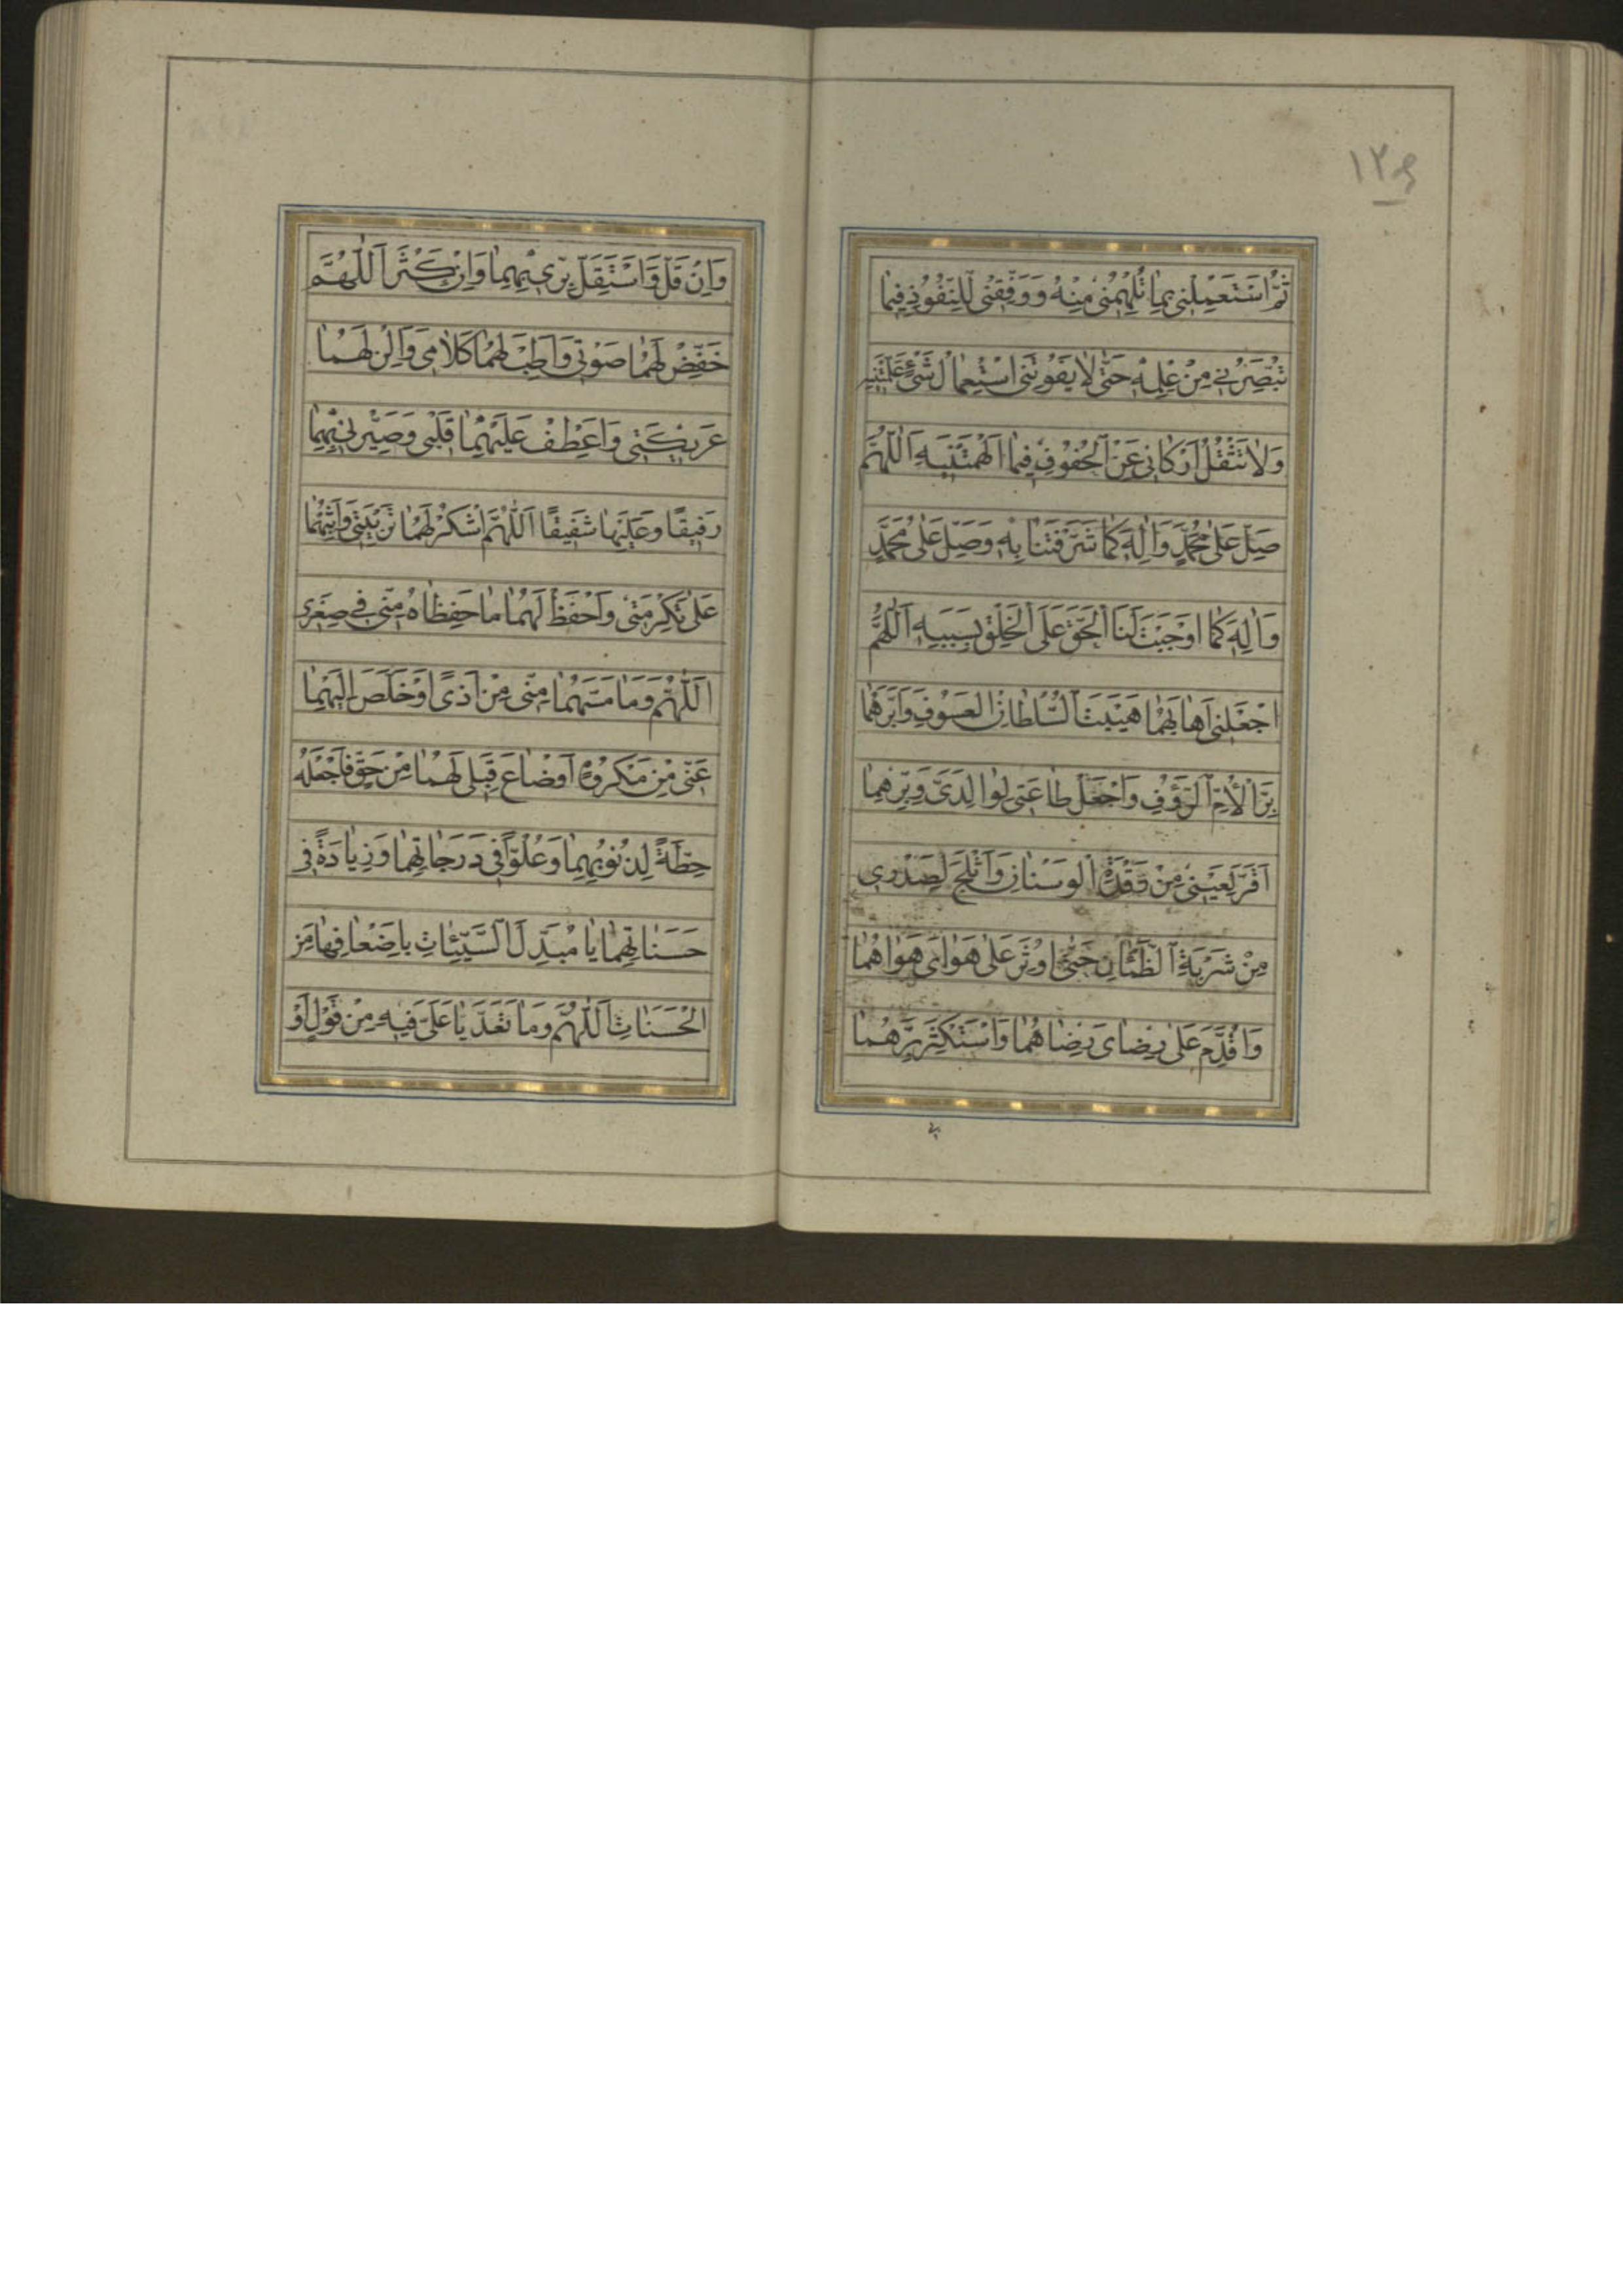 ١٢٤
ثُمَّ اسْتَعْمِلْنِي بِمَا تُلْهِمُنِي مِنْهُ وَوَفِّقْنِي لِلنُّفُوذِ فِيمَا
تُبَصِّرُنِي مِنْ عِلْمِهِ حَتَّى لَا يَفُوتَنِي اسْتِعْمَالُ شَيْءٍ عَلَّمْتَنِيهِ
وَلَا تَثْقُلَ أَرْكَانِي عَنِ الْحُفُوفِ فِيمَا أَلْهَمْتَنِيهِ اَللّٰهُمَّ
صَلِّ عَلَى مُحَمَّدٍ وَآلِهِ كَمَا شَرَّفْتَنَا بِهِ وَصَلِّ عَلَى مُحَمَّدٍ
وَآلِهِ كَمَا أَوْجَبْتَ لَنَا الْحَقَّ عَلَى الْخَلْقِ بِسَبَبِهِ اَللّٰهُمَّ
اجْعَلْنِي أَهَابُهُمَا هَيْبَةَ السُّلْطَانِ الْعَسُوفِ وَأَبَرُّهُمَا
بِرَّ الْأُمِّ الرَّؤُفِ وَاجْعَلْ طَاعَتِي لِوَالِدَيَّ وَبِرِّي بِهِمَا
أَقَرَّ لِعَيْنِي مِنْ رَقْدَةِ الْوَسْنَانِ وَأَثْلَجَ لِصَدْرِي
مِنْ شَرْبَةِ الظَّمْآنِ حَتَّى أُوثِرَ عَلَى هَوَايَ هَوَاهُمَا
وَأُقَدِّمَ عَلَى رِضَايَ رِضَاهُمَا وَأَسْتَكْثِرَ بِرَّهُمَا
وَإِنْ قَلَّ وَأَسْتَقِلَّ بِرِّي بِهِمَا وَإِنْ كَثُرَ اَللّٰهُمَّ
خَفِّضْ لَهُمَا صَوْتِي وَأَطِبْ لَهُمَا كَلَامِي وَأَلِنْ لَهُمَا
عَرِيكَتِي وَاعْطِفْ عَلَيْهِمَا قَلْبِي وَصَيِّرْنِي بِهِمَا
رَفِيقًا وَعَلَيْهِمَا شَفِيقًا اَللّٰهُمَّ اشْكُرْ لَهُمَا تَرْبِيَتِي وَأَثِبْهُمَا
عَلَى تَكْرِمَتِي وَاحْفَظْ لَهُمَا مَا حَفِظَاهُ مِنِّي فِي صِغَرِي
اَللّٰهُمَّ وَمَا مَسَّهُمَا مِنِّي مِنْ أَذًى أَوْ خَلَصَ إِلَيْهِمَا
عَنِّي مِنْ مَكْرُوهٍ أَوْ ضَاعَ قِبَلِي لَهُمَا مِنْ حَقٍّ فَاجْعَلْهُ
حِطَّةً لِذُنُوبِهِمَا وَعُلُوًّا فِي دَرَجَاتِهِمَا وَزِيَادَةً فِي
حَسَنَاتِهِمَا يَا مُبَدِّلَ السَّيِّئَاتِ بِأَضْعَافِهَا مِنَ
الْحَسَنَاتِ اَللّٰهُمَّ وَمَا تَعَدَّيَا عَلَيَّ فِيهِ مِنْ قَوْلٍ أَوْ